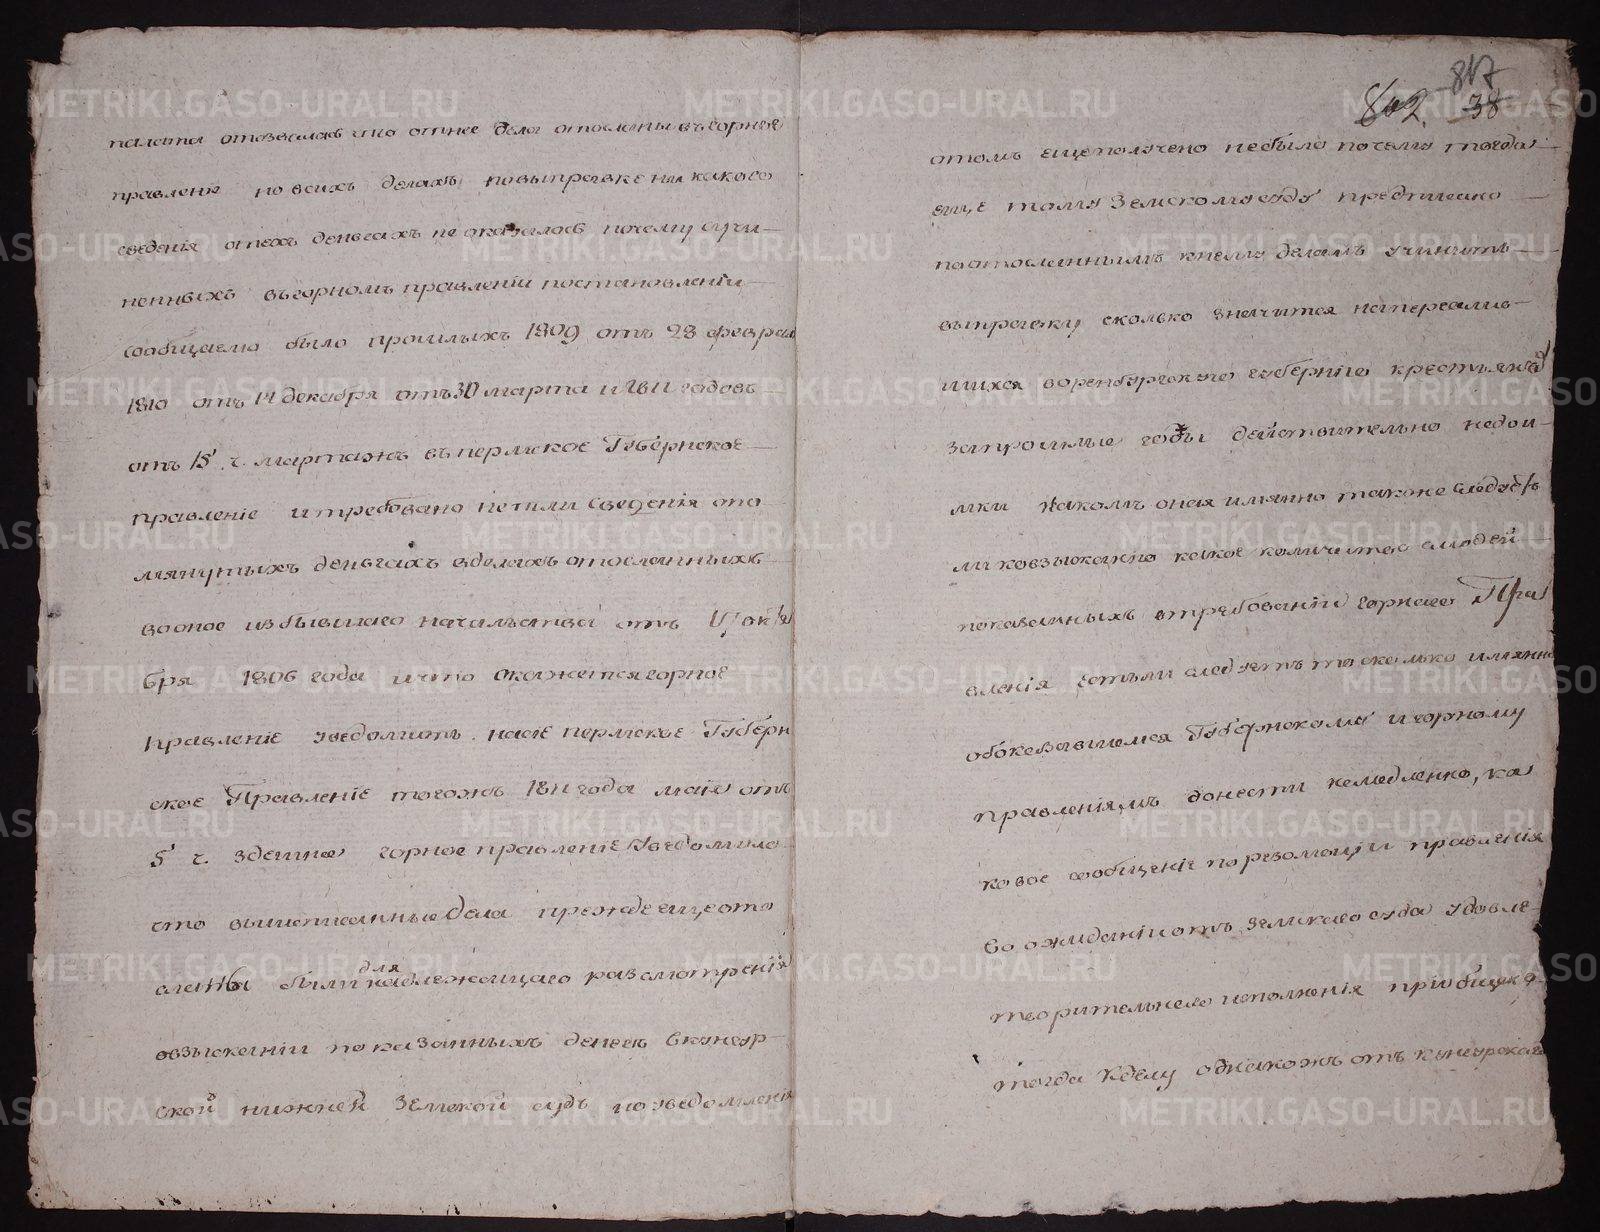 палата отозвалась что от нее дела отосланы въ горное
правленіе но во всихъ делахъ по выправке ни какого
сведенія о техъ деньгахъ не оказалось почему съучи-
ненныхъ въ горномъ правленіи постановленіи
сообщаемо было прошлыхъ 1809 отъ 23 феврал
1810 отъ 14 декабря отъ 30 марта и 1811 годовъ
отъ 15 ч. мартажъ въ пермское Губернское
правленіе и требовано нетили сведенія опо-
мянутыхъ деньгахъ вделахъ отосланныхъ
во оное избывшаго начальства отъ 17 октя
бря 1806 года и что окажется горное
правленіе уведомить. на сіе пермское Губерн
ское Правленіе тогожъ 1811 года маія отъ
5 ч. здешнее горное правленіе Уведомило
что вышеписанные дела прежде еще ото
сланы были для надлежащаго разсмотренія
овзысканіи показанныхъ денегъ вкунгур-
ской нижней Земской судъ но уведомленія
802. 817
38
отомъ еще получено небыло почему тогда
еще тому Земскому суду предписано
поотосланнымъ кнему деламъ учинить
выправку сколько значится напереслив-
шихся воренбургскую губернію крестьянахъ
запрошлые годы действительно недои-
мки накомъ оная имянно также следуетъ
ли ковзысканію какое количество слюдей
показанныхъ втребованіи горнаго Пра
вленія естьли следуетъ то сколько имянно
обоказавшемся Губернскому и горному
правленіямъ донести немедленно, ка
ковое сообщеніе порезолюціи правленія
во ожиданіи отъ земскаго суда удовле-
творительнаго исполненія пріобщено
тогда кделу однакожъ отъ кунгурскаго